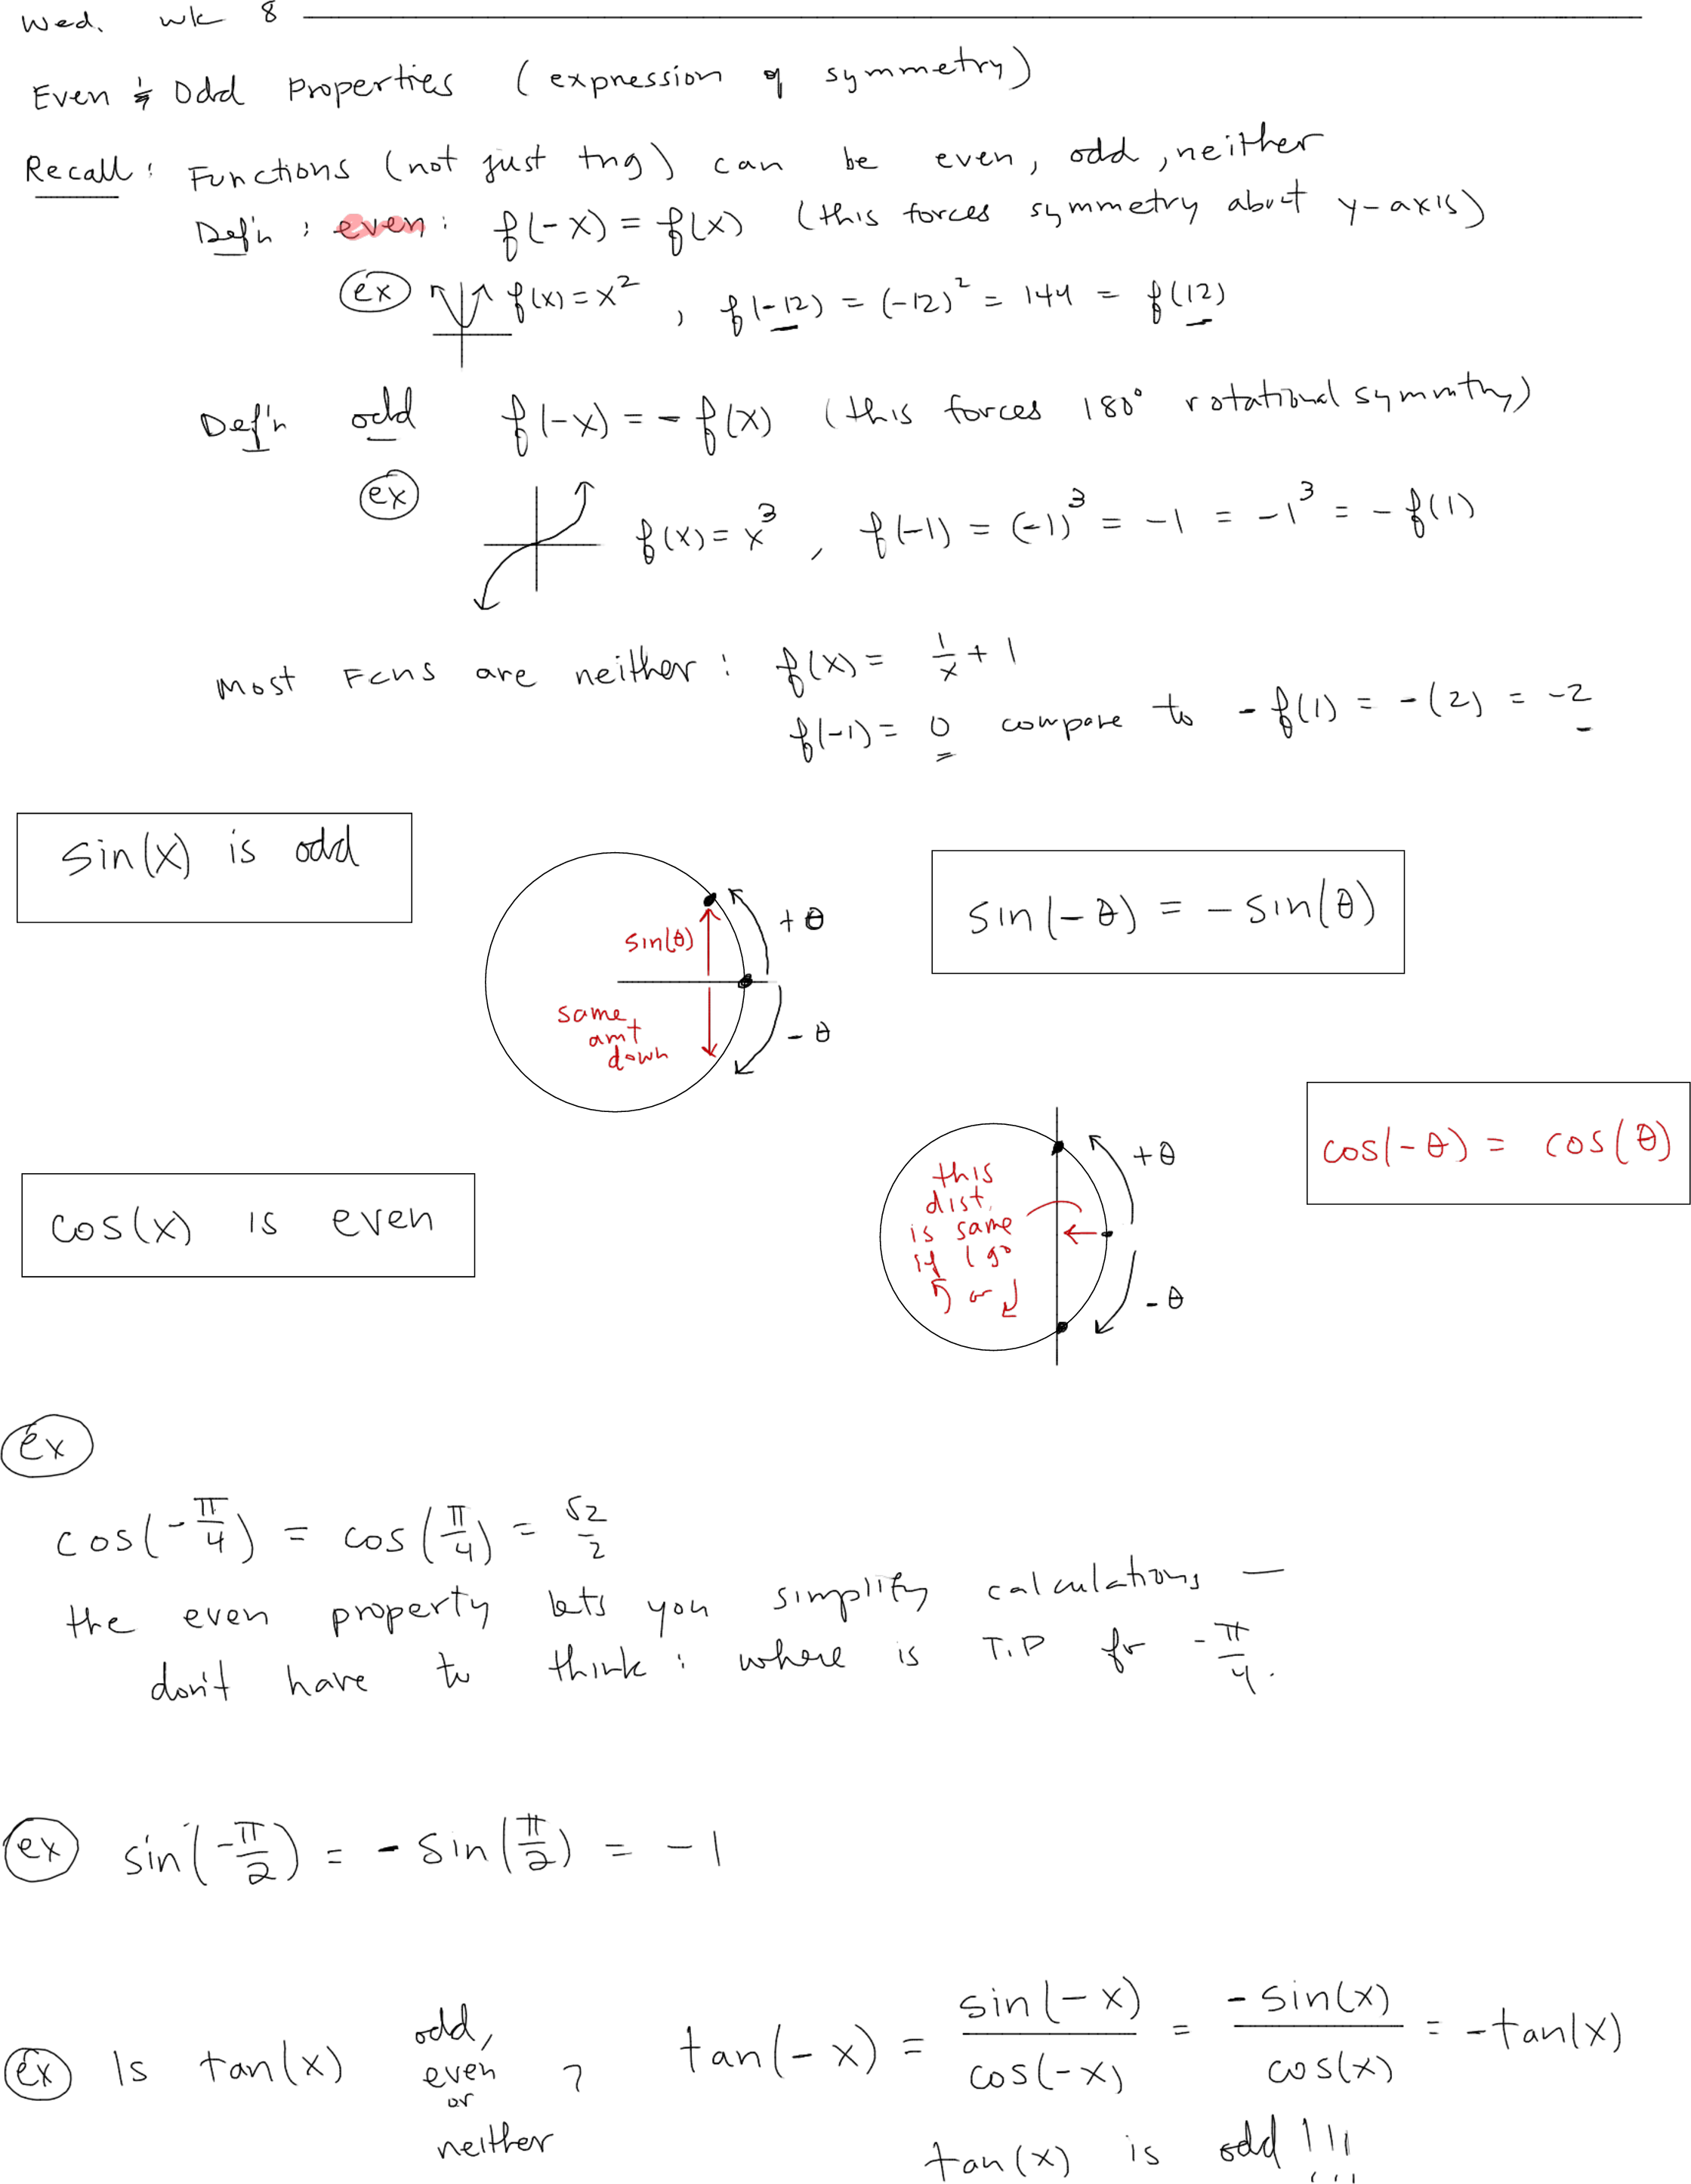 Wed. wk 8
Even & Odd Properties (expression of symmetry)
Recall: Functions (not just trig) can be even, odd, neither
Def'n: even: f(-x) = f(x) (this forces symmetry about y-axis)
ex f(x) = x², f(-12) = (-12)² = 144 = f(12)
Def'n odd f(-x) = - f(x) (this forces 180° rotational symmtry)
ex f(x) = x³, f(-1) = (-1)³ = -1 = -1³ = - f(1)
Most Fcns are neither: f(x) = 1/x + 1
f(-1) = 0 compare to - f(1) = -(2) = -2
sin(x) is odd
sin(-θ) = - sin(θ)
+θ
sin(θ)
same
amt
down
-θ
cos(-θ) = cos(θ)
cos(x) is even
+θ
this
dist.
is same
if I go
or
-θ
ex
cos(-π/4) = cos(π/4) = √2/2
the even property lets you simplify calculations —
don't have to think: where is T.P for -π/4.
ex sin(-π/2) = - sin(π/2) = -1
ex Is tan(x) odd, even or neither ?
tan(-x) = sin(-x)/cos(-x) = -sin(x)/cos(x) = -tan(x)
tan(x) is odd !!!